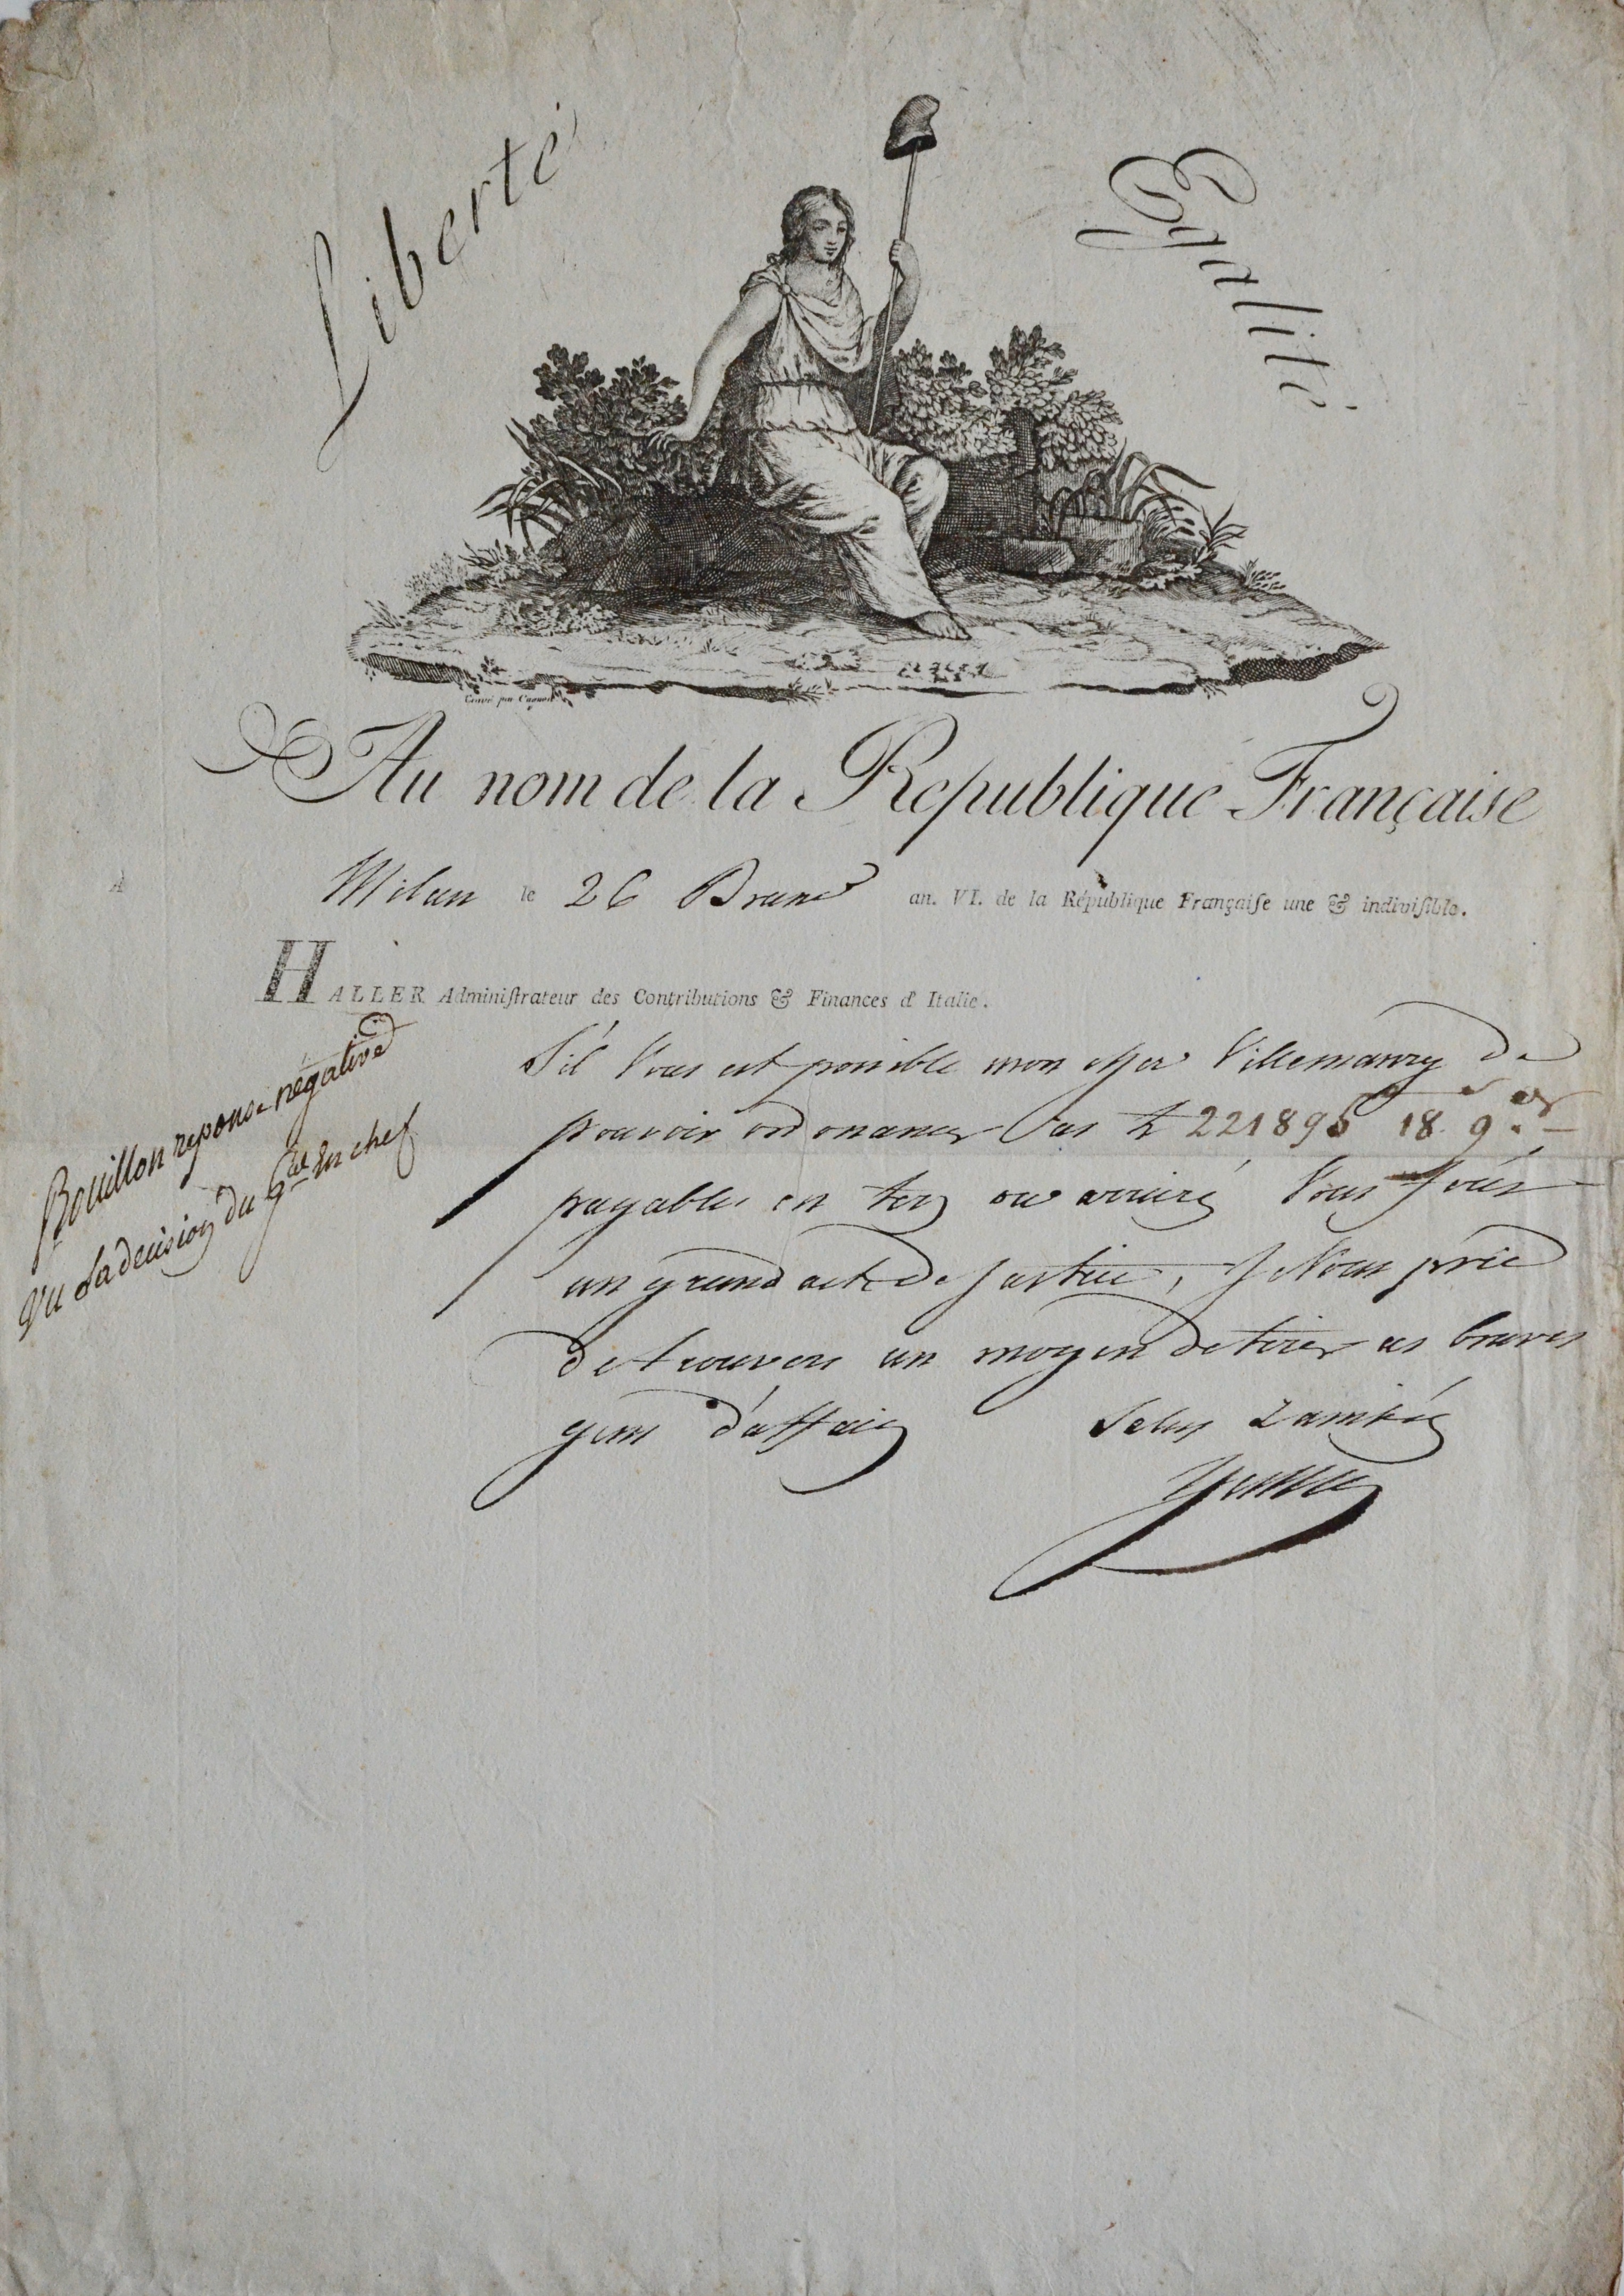 Liberté
Egalité
Gravé par
Au nom de la Republique Française
A
Milan le 26 Brum.e an. VI. de la République Françaiſe une & indiviſible.
HALLER Adminiſtrateur des Contributions & Finances d'Italie.
S'il Vous est possible mon cher Villemanzy de
pouvoir ordonancer ces ₶ 221895 18. 9.
payables en ou arriéré Vous
un grand acte de Justice, Je Vous prie
de trouver un moyen de tirer ces braves
gens d'affaire Salut & amitié
Haller
Bouillon reponse négative
Vu la decision du g.al En chef